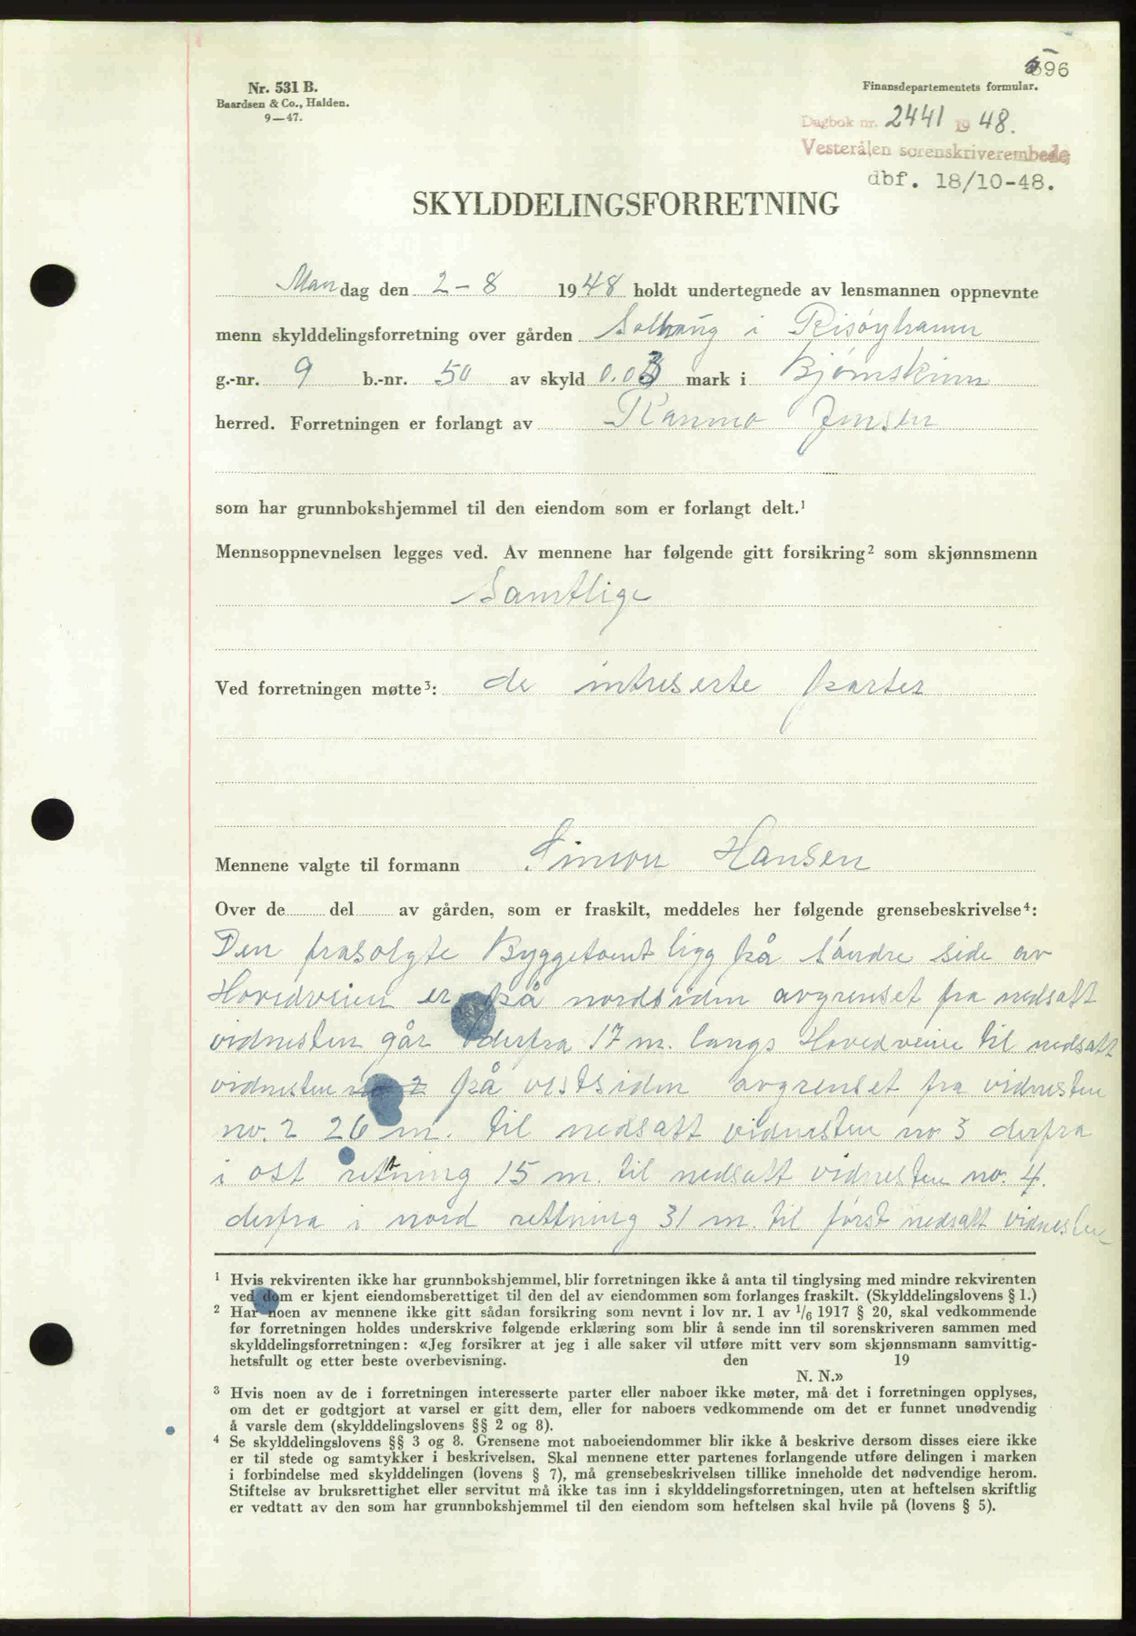 596
Nr. 531 B.
Baardsen & Co., Halden.
9—47.
Finansdepartementets formular.
Dagbok nr. 2441 1948.
Vesterålen sorenskriverembede
dbf. 18/10-48.
SKYLDDELINGSFORRETNING
Mandag den 2-8 1948 holdt undertegnede av lensmannen oppnevnte
menn skylddelingsforretning over gården Solhaug i Risøyhamn
g.-nr. 9 b.-nr. 50 av skyld 0.03 mark i Bjørnskinn
herred. Forretningen er forlangt av Jensen
som har grunnbokshjemmel til den eiendom som er forlangt delt.¹
Mennsoppnevnelsen legges ved. Av mennene har følgende gitt forsikring² som skjønnsmenn
Samtlige
Ved forretningen møtte³: de intreserte parter
Mennene valgte til formann Simon Hansen
Over de del av gården, som er fraskilt, meddeles her følgende grensebeskrivelse⁴:
Den frasolgte Byggetomt ligg på søndre side av
Hovedveien er på nordsiden avgrenset fra nedsatt
vidnesten går derfra 17 m. langs Hovedveien til nedsatt
vidnesten på vestsiden avgrenset fra vidnesten
no. 2 26 m. til nedsatt vidnesten no 3 derfra
i øst rettning 15 m. til nedsatt vidnesten no. 4.
derfra i nord rettning 31 m. til først nedsatt vidnesten
¹ Hvis rekvirenten ikke har grunnbokshjemmel, blir forretningen ikke å anta til tinglysing med mindre rekvirenten
ved dom er kjent eiendomsberettiget til den del av eiendommen som forlanges fraskilt. (Skylddelingslovens § 1.)
² Har noen av mennene ikke gitt sådan forsikring som nevnt i lov nr. 1 av 1/6 1917 § 20, skal vedkommende
før forretningen holdes underskrive følgende erklæring som blir å sende inn til sorenskriveren sammen med
skylddelingsforretningen: «Jeg forsikrer at jeg i alle saker vil utføre mitt verv som skjønnsmann samvittig-
hetsfullt og etter beste overbevisning. den 19
N. N.»
³ Hvis noen av de i forretningen interesserte parter eller naboer ikke møter, må det i forretningen opplyses,
om det er godtgjort at varsel er gitt dem, eller for naboers vedkommende om det er funnet unødvendig
å varsle dem (skylddelingslovens §§ 2 og 8).
⁴ Se skylddelingslovens §§ 3 og 8. Grensene mot naboeiendommer blir ikke å beskrive dersom disses eiere ikke
er til stede og samtykker i beskrivelsen. Skal mennene etter partenes forlangende utføre delingen i marken
i forbindelse med skylddelingen (lovens § 7), må grensebeskrivelsen tillike inneholde det nødvendige herom.
Stiftelse av bruksrettighet eller servitut må ikke tas inn i skylddelingsforretningen, uten at heftelsen skriftlig
er vedtatt av den som har grunnbokshjemmel til den eiendom som heftelsen skal hvile på (lovens § 5).